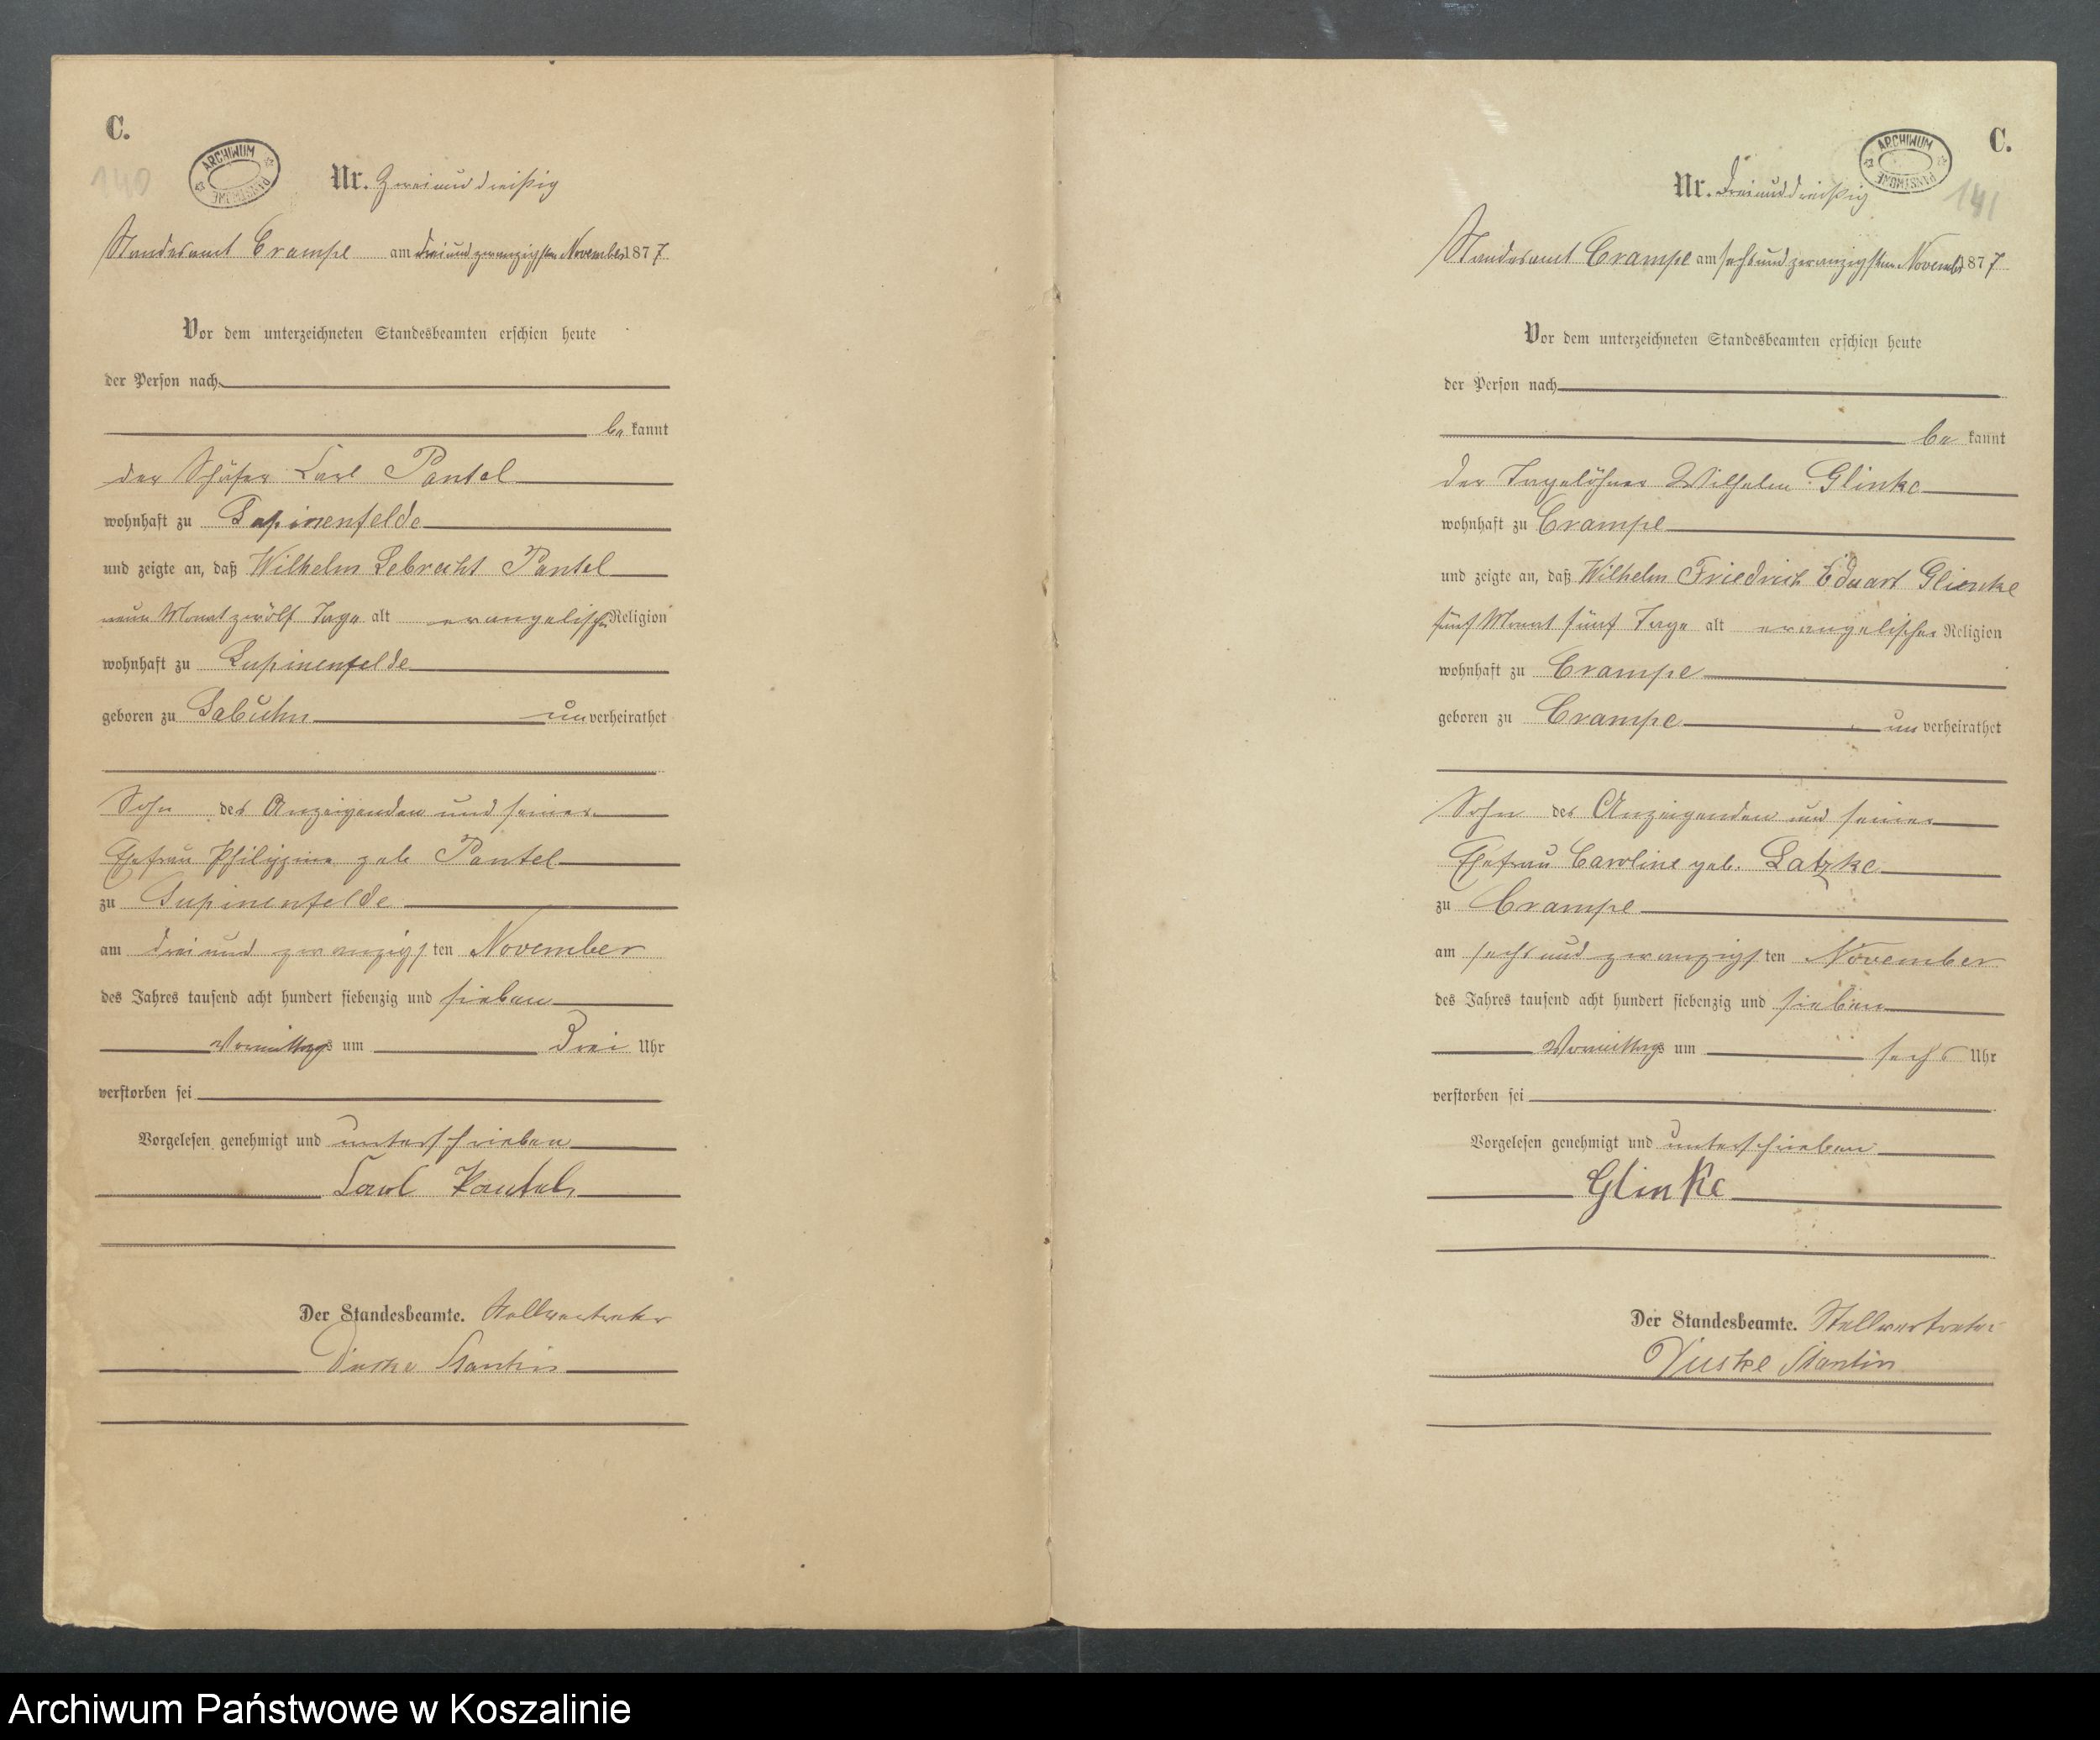 C.
140
ARCHIWUM PAŃSTWOWE
Nr. Zweiunddreißig
Standesamt Crampe am dreiundzwanzigsten November 1877
Vor dem unterzeichneten Standesbeamten erschien heute
der Person nach
be kannt
der Schäfer Carl Pantel
wohnhaft zu Lupinenfelde
und zeigte an, daß Wilhelm Lebrecht Pantel
neun Monat zwölf Tage alt evangelisch Religion
wohnhaft zu Lupinenfelde
geboren zu Labuhn un verheirathet
Sohn des Anzeigenden und seiner
Ehefrau Philippine geb Pantel
zu Lupinenfelde
am drei und zwanzigsten November
des Jahres tausend acht hundert siebenzig und sieben
Vormittags um Drei Uhr
verstorben sei
Vorgelesen genehmigt und unterschrieben
Carl Pantel
Der Standesbeamte. Stellvertreter
C.
141
ARCHIWUM PAŃSTWOWE
Nr. Dreiunddreißig
Standesamt Crampe am sechsundzwanzigsten November 1877
Vor dem unterzeichneten Standesbeamten erschien heute
der Person nach
be kannt
der Tagelöhner Wilhelm Glinke
wohnhaft zu Crampe
und zeigte an, daß Wilhelm Friedrich Eduart Glienke
fünf Monat fünf Tage alt evangelischer Religion
wohnhaft zu Crampe
geboren zu Crampe un verheirathet
Sohn des Anzeigenden und seiner
Ehefrau Caroline geb. Latzke
zu Crampe
am sechs und zwanzigsten November
des Jahres tausend acht hundert siebenzig und sieben
Vormittags um sechs Uhr
verstorben sei
Vorgelesen genehmigt und unterschrieben
Glinke
Der Standesbeamte. Stellvertreter
Archiwum Państwowe w Koszalinie